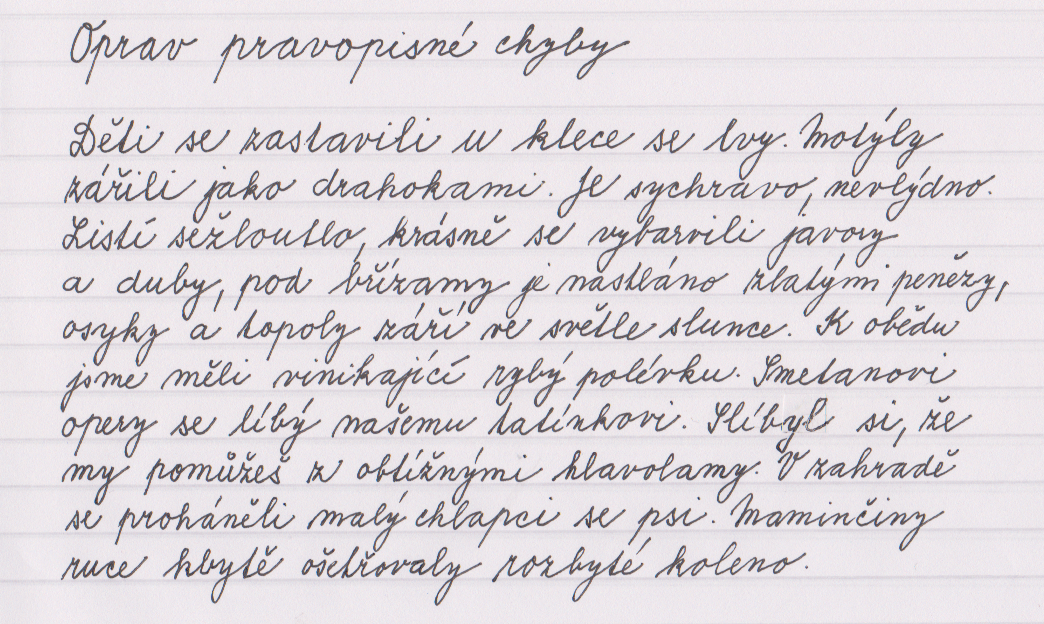 Oprav pravopisné chyby
Děti se zastavili u klece se lvy. Motýly
zářili jako drahokami. Je sychravo, nevlýdno.
Listí sežloutlo, krásně se vybarvili javory
a duby, pod břízamy je nastláno zlatými penězy,
osyky a topoly září ve světle slunce. K obědu
jsme měli vinikající rybý polévku. Smetanovi
opery se líbý našemu tatínkovi. Slíbyl si, že
my pomůžeš z obtížnými hlavolamy. V zahradě
se proháněli malý chlapci se psi. Maminčiny
ruce hbytě ošetřovaly rozbyté koleno.